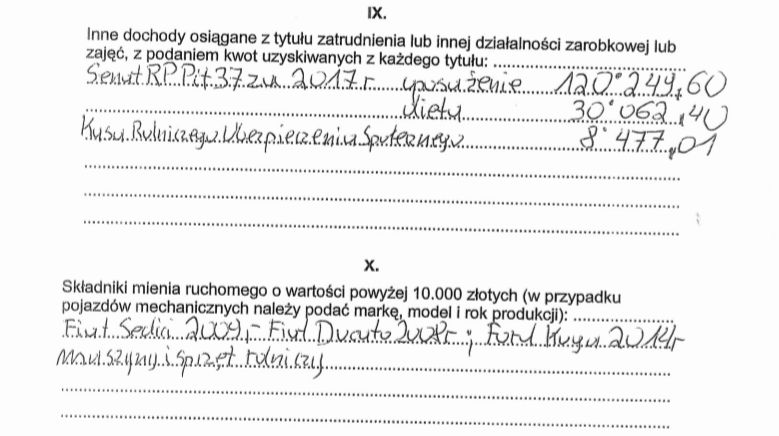 IX.
Inne dochody osiągane z tytułu zatrudnienia lub innej działalności zarobkowej lub
zajęć, z podaniem kwot uzyskiwanych z każdego tytułu: ..............................
Senat RP Pit 37 za 2017 r uposużenie 120'249,60
dieta 30'062,40
Kasa Rolniczego Ubezpieczenia Społecznego 8'477,01
X.
Składniki mienia ruchomego o wartości powyżej 10.000 złotych (w przypadku
pojazdów mechanicznych należy podać markę, model i rok produkcji): ....................
Fiat Sedici 2009,- Fiat Ducato 2008r; Ford Kuga 2014r
maszyny i sprzęt rolniczy